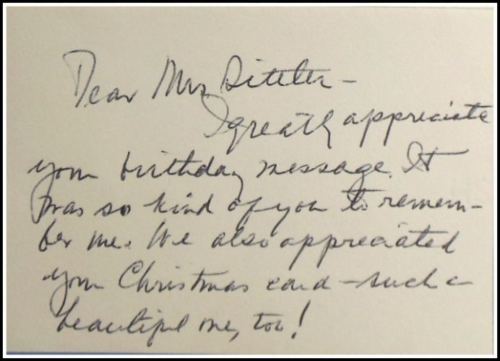 Dear Mrs Dittler –
I greatly appreciate
your birthday message. It
was so kind of you to remem-
ber me. We also appreciated
your Christmas card – such a
beautiful one, too!